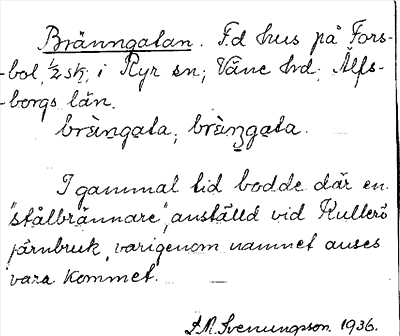 Bränngatan. F.d hus på Fors-
-bol, ½ sk, i Ryr sn; Väne hd; Älfs-
-borgs län.
brä̀ngata; brä̀nʒgata.
I gammal tid bodde där en
"stålbrännare", anställd vid Kullerö
järnbruk, varigenom namnet anses
vara kommet.
Svenungson. 1936.